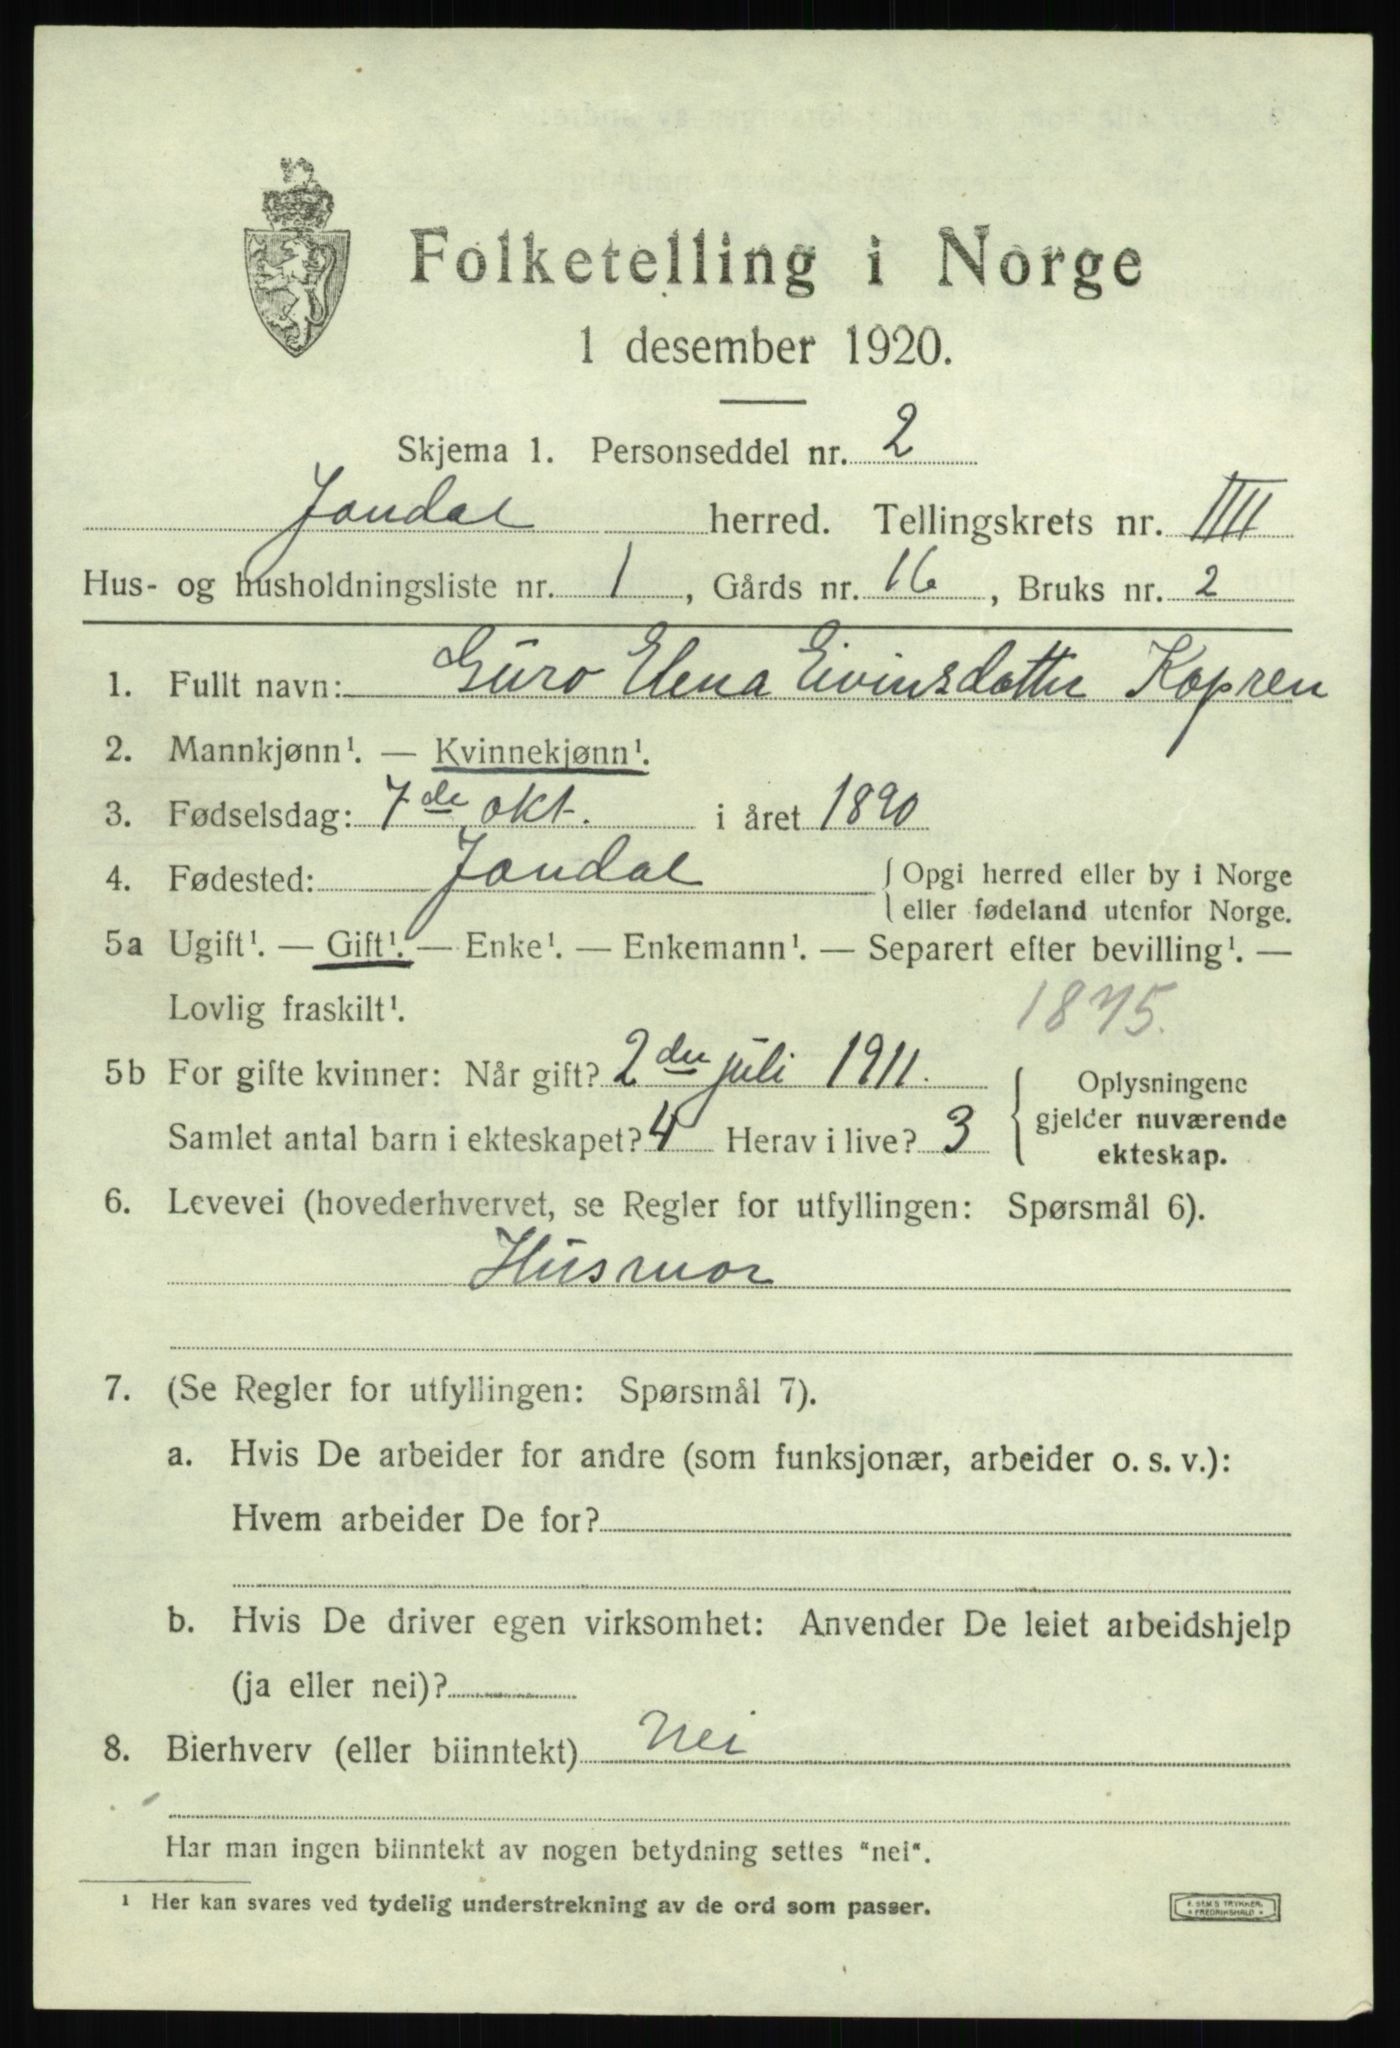 Folketelling i Norge
1 desember 1920.
Skjema 1. Personseddel nr. 2
Jondal herred. Tellingskrets nr. IIII
Hus- og husholdningsliste nr. 1, Gårds nr. 16, Bruks nr. 2
1. Fullt navn: Guro Elena Eivinsdotter Kopren
2. Mannkjønn¹. — Kvinnekjønn¹.
3. Fødselsdag: 7de okt. i året 1890
4. Fødested: Jondal { Opgi herred eller by i Norge
eller fødeland utenfor Norge.
5a Ugift¹. — Gift¹. — Enke¹. — Enkemann¹. — Separert efter bevilling¹. —
Lovlig fraskilt¹. 1875.
5b For gifte kvinner: Når gift? 2den juli 1911.
Samlet antal barn i ekteskapet? 4 Herav i live? 3
{ Oplysningene
gjelder nuværende
ekteskap.
6. Levevei (hovederhvervet, se Regler for utfyllingen: Spørsmål 6).
Husmor
7. (Se Regler for utfyllingen: Spørsmål 7).
a. Hvis De arbeider for andre (som funksjonær, arbeider o. s. v.):
Hvem arbeider De for?
b. Hvis De driver egen virksomhet: Anvender De leiet arbeidshjelp
(ja eller nei)?
8. Bierhverv (eller biinntekt) Nei
Har man ingen biinntekt av nogen betydning settes "nei".
¹ Her kan svares ved tydelig understrekning av de ord som passer.
E. SEM'S TRYKKERI
FREDRIKSHALD